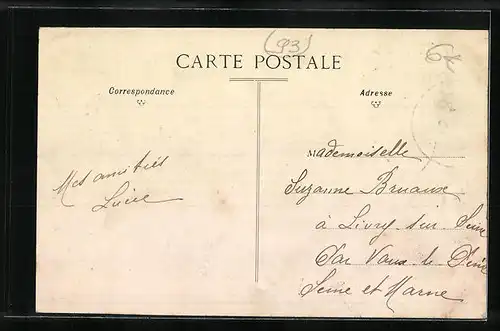 (93)
CARTE POSTALE
Correspondance
Adresse
Mes amitiés
Lucie
Mademoiselle
Suzanne Bruaux
à Livry sur Seine
Par Vaux le Pénil
Seine et Marne